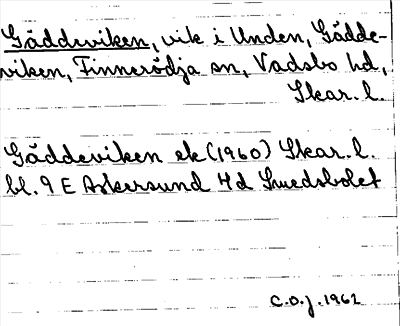 Gäddeviken, vik i Unden, Gädde-
viken, Finnerödja sn, Vadsbo hd,
Skar. l.
Gäddeviken ek (1960) Skar. l.
bl. 9 E Askersund 4d Smedsbolet
C.O.J. 1962